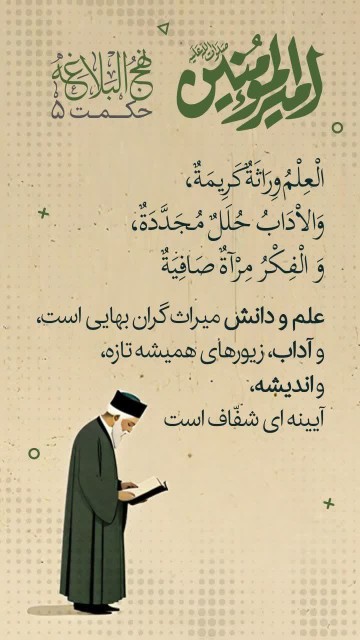 امیرالمؤمنین صلوات‌الله‌علیه
نهج البلاغه
حکمت ۵
الْعِلْمُ وِرَاثَةٌ كَرِيمَةٌ،
وَالْآدَابُ حُلَلٌ مُجَدَّدَةٌ،
وَ الْفِكْرُ مِرْآةٌ صَافِيَةٌ
علم و دانش میراث گران بهایی است،
و آداب، زیورهای همیشه تازه،
و اندیشه،
آیینه ای شفّاف است